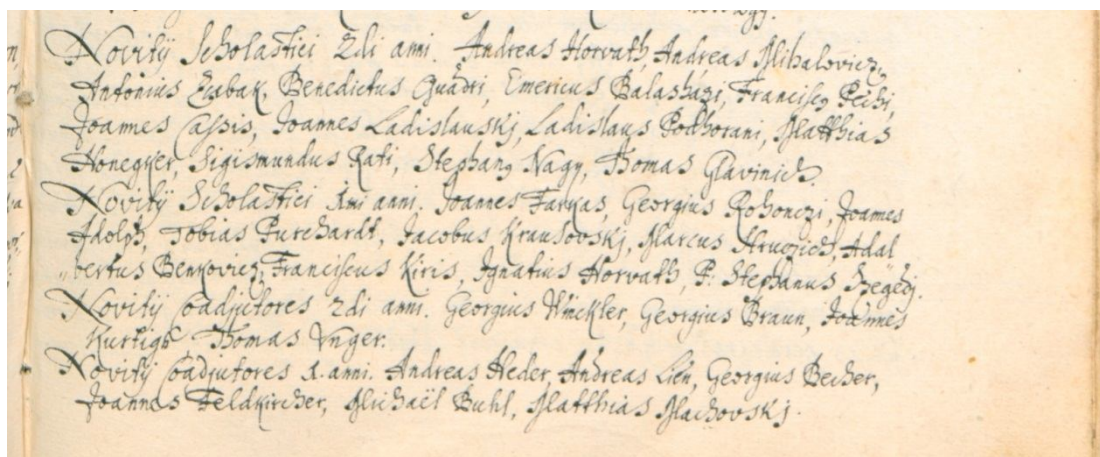 Novitij Scholastici 2di anni. Andreas Horvath, Andreas Mihalovicz,
Antonius Zabak, Benedictus Quadri, Emericus Balashazi, Franciscq Pechi,
Joannes Cassis, Joannes Ladislauskj, Ladislaus Podhorani, Matthias
Honegker, Sigismundus Rati, Stephanq Nagy, Thomas Glavinich.
Novitij Scholastici 1mi anni. Joannes Farkas, Georgius Rohonczi, Joannes
Adolph, Tobias Purchardt, Jacobus Krausovskj, Marcus Hruczich, Adal
bertus Benkovicz, Franciscus Kiris, Ignatius Horvath, P. Stephanus Szegedj.
Novitij Coadjutores 2di anni. Georgius Winckler, Georgius Braun, Joannes
Kurtigh Thomas Unger.
Novitij Coadjutores 1. anni. Andreas Heder, Andreas Lien, Georgius Becher,
Joannes Feldkircher, Michaël Buhl, Matthias Machovskj.